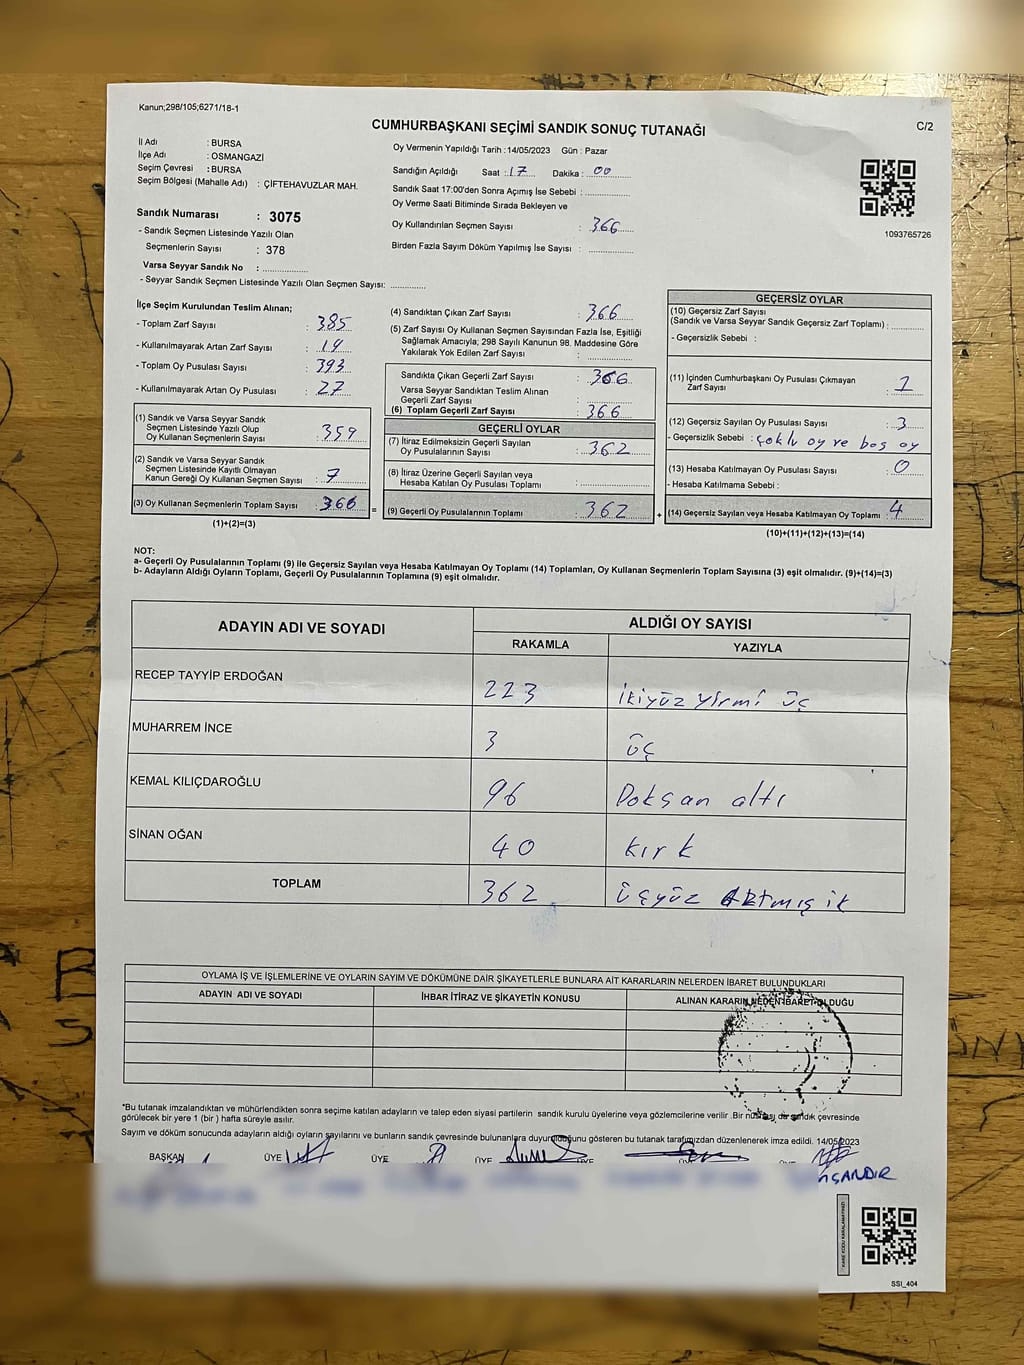 Kanun;298/105;6271/18-1
CUMHURBAŞKANI SEÇİMİ SANDIK SONUÇ TUTANAĞI
C/2
İl Adı : BURSA
İlçe Adı : OSMANGAZİ
Seçim Çevresi : BURSA
Seçim Bölgesi (Mahalle Adı) : ÇİFTEHAVUZLAR MAH.
Oy Vermenin Yapıldığı Tarih : 14/05/2023 Gün : Pazar
Sandığın Açıldığı Saat : 17 Dakika : 00
Sandık Saat 17:00'den Sonra Açımış İse Sebebi :
Oy Verme Saati Bitiminde Sırada Bekleyen ve
Oy Kullandırılan Seçmen Sayısı : 366
Birden Fazla Sayım Döküm Yapılmış İse Sayısı :
1093765726
Sandık Numarası : 3075
- Sandık Seçmen Listesinde Yazılı Olan
Seçmenlerin Sayısı : 378
Varsa Seyyar Sandık No :
- Seyyar Sandık Seçmen Listesinde Yazılı Olan Seçmen Sayısı:
İlçe Seçim Kurulundan Teslim Alınan;
- Toplam Zarf Sayısı : 385
- Kullanılmayarak Artan Zarf Sayısı : 19
- Toplam Oy Pusulası Sayısı : 393
- Kullanılmayarak Artan Oy Pusulası : 27
(1) Sandık ve Varsa Seyyar Sandık
Seçmen Listesinde Yazılı Olup
Oy Kullanan Seçmenlerin Sayısı : 359
(2) Sandık ve Varsa Seyyar Sandık
Seçmen Listesinde Kayıtlı Olmayan
Kanun Gereği Oy Kullanan Seçmen Sayısı : 7
(3) Oy Kullanan Seçmenlerin Toplam Sayısı : 366
(1)+(2)=(3)
=
(4) Sandıktan Çıkan Zarf Sayısı : 366
(5) Zarf Sayısı Oy Kullanan Seçmen Sayısından Fazla İse, Eşitliği
Sağlamak Amacıyla; 298 Sayılı Kanunun 98. Maddesine Göre
Yakılarak Yok Edilen Zarf Sayısı :
Sandıkta Çıkan Geçerli Zarf Sayısı : 366
Varsa Seyyar Sandıktan Teslim Alınan
Geçerli Zarf Sayısı :
(6) Toplam Geçerli Zarf Sayısı : 366
GEÇERLİ OYLAR
(7) İtiraz Edilmeksizin Geçerli Sayılan
Oy Pusulalarının Sayısı : 362
(8) İtiraz Üzerine Geçerli Sayılan veya
Hesaba Katılan Oy Pusulası Toplamı :
(9) Geçerli Oy Pusulalarının Toplamı : 362
+
GEÇERSİZ OYLAR
(10) Geçersiz Zarf Sayısı
(Sandık ve Varsa Seyyar Sandık Geçersiz Zarf Toplamı) :
- Geçersizlik Sebebi :
(11) İçinden Cumhurbaşkanı Oy Pusulası Çıkmayan
Zarf Sayısı : 1
(12) Geçersiz Sayılan Oy Pusulası Sayısı : 3
- Geçersizlik Sebebi : çoklu oy ve boş oy
(13) Hesaba Katılmayan Oy Pusulası Sayısı : 0
- Hesaba Katılmama Sebebi :
(14) Geçersiz Sayılan veya Hesaba Katılmayan Oy Toplamı : 4
(10)+(11)+(12)+(13)=(14)
NOT:
a- Geçerli Oy Pusulalarının Toplamı (9) ile Geçersiz Sayılan veya Hesaba Katılmayan Oy Toplamı (14) Toplamları, Oy Kullanan Seçmenlerin Toplam Sayısına (3) eşit olmalıdır. (9)+(14)=(3)
b- Adayların Aldığı Oyların Toplamı, Geçerli Oy Pusulalarının Toplamına (9) eşit olmalıdır.
ADAYIN ADI VE SOYADI
ALDIĞI OY SAYISI
RAKAMLA YAZIYLA
RECEP TAYYİP ERDOĞAN 223 ikiyüz yirmi üç
MUHARREM İNCE 3 üç
KEMAL KILIÇDAROĞLU 96 Doksan altı
SİNAN OĞAN 40 kırk
TOPLAM 362 üçyüz Altmış ik
OYLAMA İŞ VE İŞLEMLERİNE VE OYLARIN SAYIM VE DÖKÜMÜNE DAİR ŞİKAYETLERLE BUNLARA AİT KARARLARIN NELERDEN İBARET BULUNDUKLARI
ADAYIN ADI VE SOYADI İHBAR İTİRAZ VE ŞİKAYETİN KONUSU ALINAN KARARIN NEDEN İBARET OLDUĞU
*Bu tutanak imzalandıktan ve mühürlendikten sonra seçime katılan adayların ve talep eden siyasi partilerin sandık kurulu üyelerine veya gözlemcilerine verilir .Bir nüshası da sandık çevresinde
görülecek bir yere 1 (bir ) hafta süreyle asılır.
Sayım ve döküm sonucunda adayların aldığı oyların sayılarını ve bunların sandık çevresinde bulunanlara duyurulduğunu gösteren bu tutanak tarafımızdan düzenlenerek imza edildi. 14/05/2023
BAŞKAN ÜYE ÜYE ÜYE ÜYE ÜYE ÜYE
SSI_404